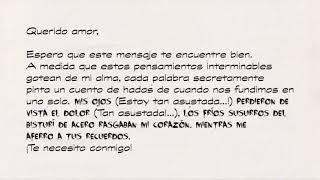 Querido amor,
Espero que este mensaje te encuentre bien.
A medida que estos pensamientos interminables
gotean de mi alma, cada palabra secretamente
pinta un cuento de hadas de cuando nos fundimos en
uno solo. MIS OJOS (Estoy tan asustada...!) PERDIERON DE
VISTA EL DOLOR (Tan asustada!...), LOS FRÍOS SUSURROS DEL
BISTURÍ DE ACERO RASGABAN MI CORAZÓN. MIENTRAS ME
AFERRO A TUS RECUERDOS.
¡Te necesito conmigo!